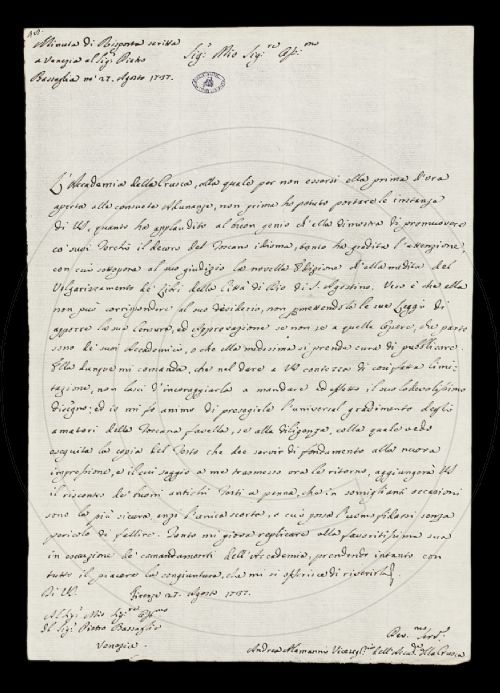 Minuta di Risposta scritta
a Venezia al Sig.r Pietro
Bassaglia ne' 27. Agosto 1757.
Sig.r Mio Sig.re
L'Accademia della Crusca, alla quale per non essersi ella prima d'ora
aperta alle consuete Adunanze, non prima ho potuto portare le instanze
di VS., quanto ha applaudito al buon genio ch'ella dimostra di promuovere
co' suoi Torchi il decoro del Toscano idioma, tanto ha gradita l'attenzione
con cui sottopone al suo giudizio la novella Edizione ch'ella medita del
Volgarizzamento de' Libri della Città di Dio di S. Agostino. Vero è che ella
non può corrispondere al suo desiderio, non permettendole le sue Leggi di
apporre la sua Censura, ed Approvazione se non se a quelle Opere, che parto
sono de' suoi Accademici, o che ella medesima si prenda cura di pubblicare.
Ella dunque mi comanda, che nel dare a VS contezza di cosi fatta limi-
tazione, non lasci d'incoraggiarla a mandare ad effetto il suo lodevolissimo
disegno; ed io mi fo animo di presagirle l'universal gradimento degli
amatori della Toscana favella, se alla diligenza, colla quale vedo
eseguita la copia del Testo che dee servir di fondamento alla nuova
impressione, e il cui saggio a me trasmesso ora le ritorno, aggiungerà VS
il riscontro de' buoni antichi Testi a penna, che in somiglianti occasioni
sono la più sicura, anzi l'unica scorta, a cui possa l'uomo fidarsi senza
pericolo di fallire. Tanto mi giova replicare alla favoritissima sua
in esecuzione de' comandamenti dell'Accademia, prendendo intanto con
tutto il piacere la congiuntura, che mi si offerisce di riverirla.
Di VS.
Firenze 27. Agosto 1757.
Al Sig.r Mio Sig.re
Il Sig.r Pietro Bassaglia
Venezia.
Andrea Alamanni Viceseg.rio dell'Accad.a della Crusca